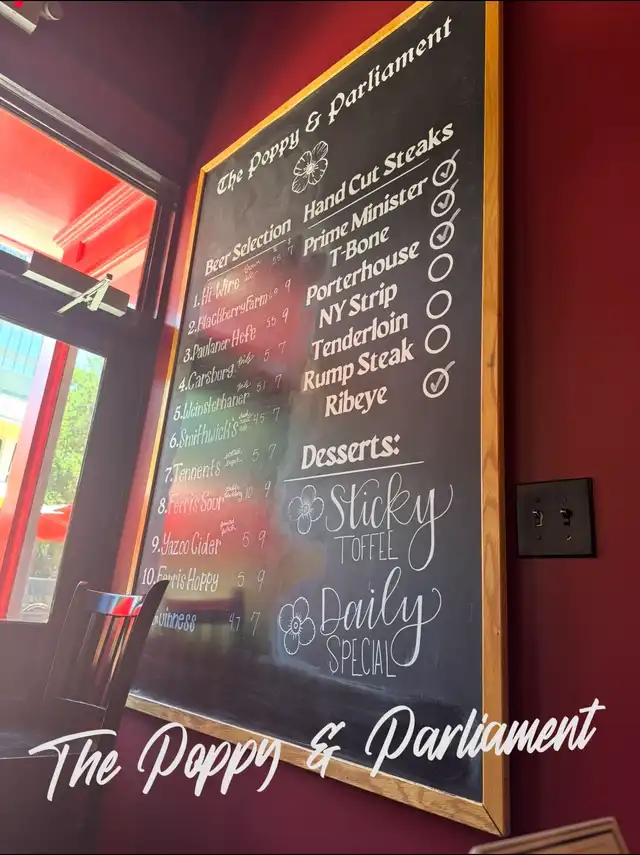 The Poppy & Parliament
Beer Selection
1. Hi-Wire
2. Blackberry Farm 9
3. Paulaner Hefe 5.5 9
4. Carsburg 5 7
5. Weinstephaner 5.1 7
6. Smithwick's 4.5 7
7. Tennents 5 7
8. Ferris Sour 10 9
9. Yazoo Cider 5 9
10. Ferris Hoppy 5 9
Guinness 4.2 7
Hand Cut Steaks
Prime Minister
T-Bone
Porterhouse
NY Strip
Tenderloin
Rump Steak
Ribeye
Desserts:
Sticky
TOFFEE
Daily
SPECIAL
The Poppy & Parliament